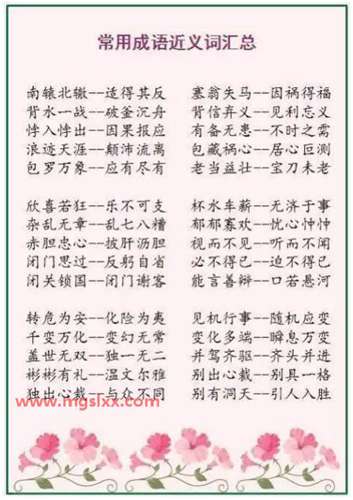 常用成语近义词汇总
南辕北辙--适得其反 塞翁失马--因祸得福
背水一战--破釜沉舟 背信弃义--见利忘义
悖入悖出--因果报应 有备无患--不时之需
浪迹天涯--颠沛流离 包藏祸心--居心叵测
包罗万象--应有尽有 老当益壮--宝刀未老
欣喜若狂--乐不可支 杯水车薪--无济于事
杂乱无章--乱七八糟 郁郁寡欢--忧心忡忡
赤胆忠心--披肝沥胆 视而不见--听而不闻
闭门思过--反躬自省 必不得已--迫不得已
闭关锁国--闭门谢客 能言善辩--口若悬河
转危为安--化险为夷 见机行事--随机应变
千变万化--变幻无常 变化多端--瞬息万变
盖世无双--独一无二 并驾齐驱--齐头并进
彬彬有礼--温文尔雅 别出心裁--别具一格
独出心裁--与众不同 别有洞天--引人入胜
www.mgslxx.com